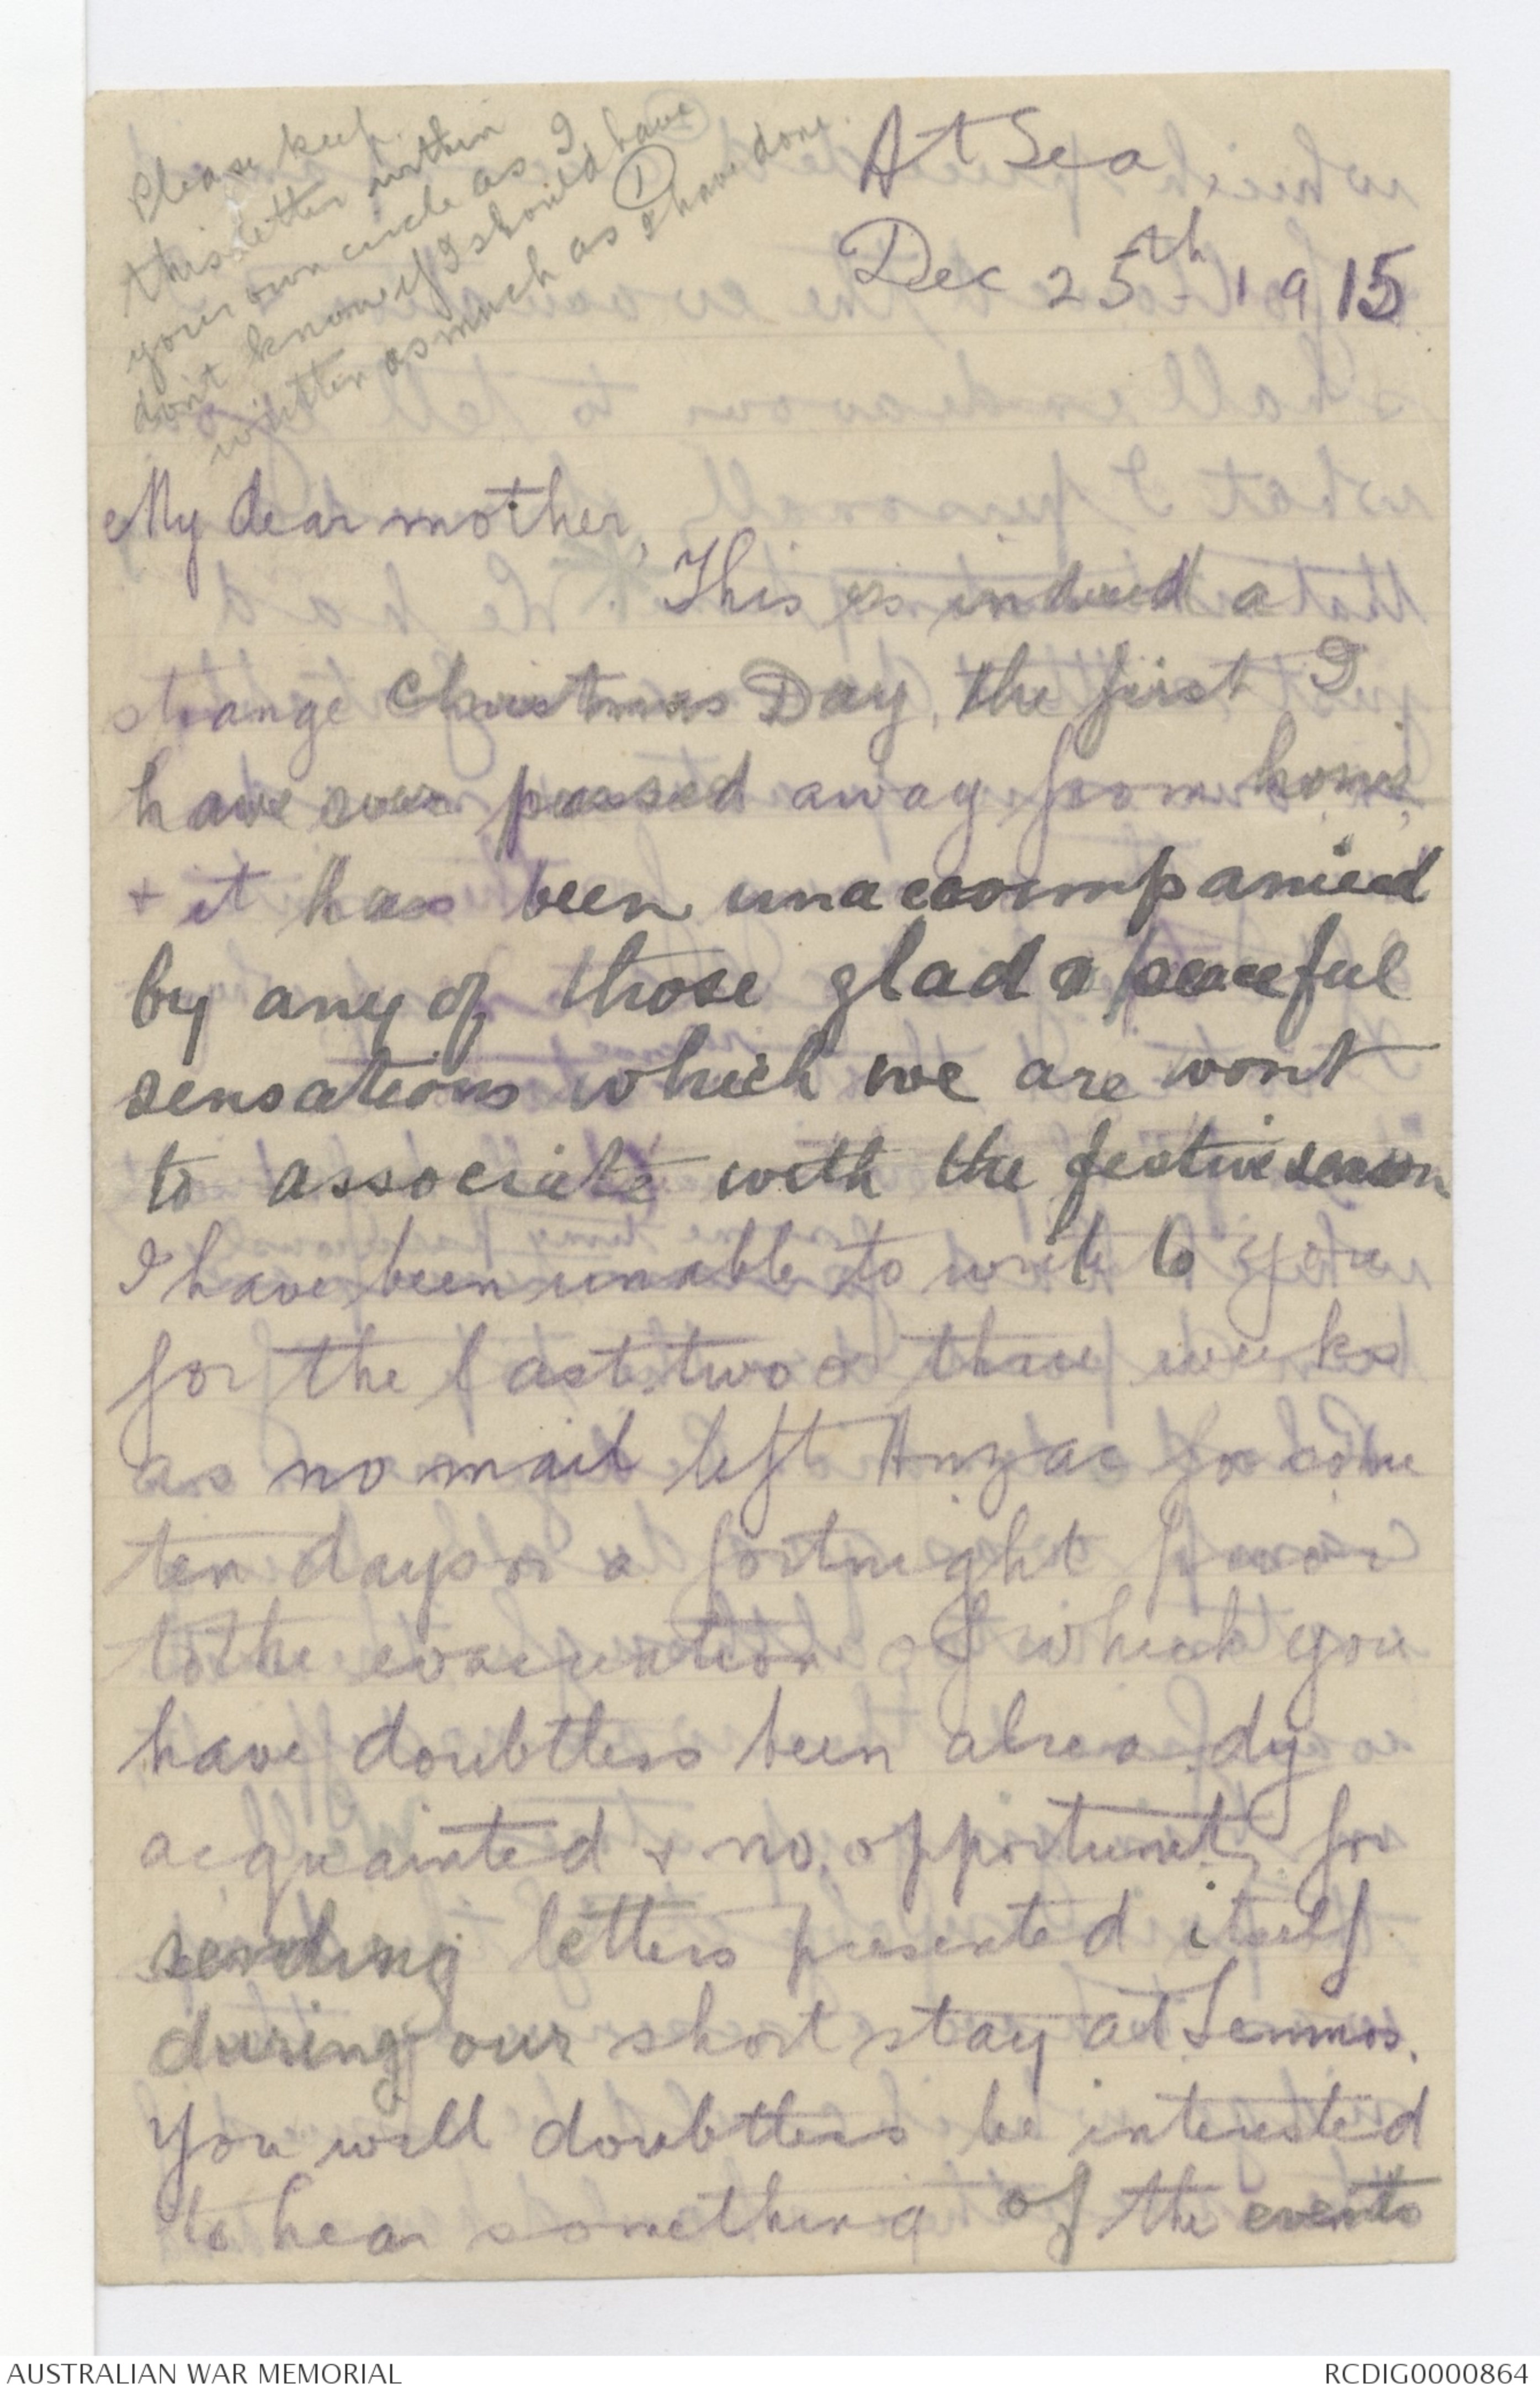 Please keep
this letter within
your own circle as I
don't know if I should have
written as much as I have done.
①
At Sea
Dec 25th 1915
My dear mother,
This is indeed a
strange Christmas Day, the first I
have ever passed away from home,
+ it has been unaccompanied
by any of those glad & peaceful
sensations which we are wont
to associate with the festive season
I have been unable to write to you
for the last two or three weeks
as no mail left Anzac for some
ten days or a fortnight prior
to the evacuation of which you
have doubtless been already
acquainted & no opportunity for
sending letters presented itself
during our short stay at Lemnos.
You will doubtless be interested
to hear something of the events
AUSTRALIAN WAR MEMORIAL
RCDIG0000864